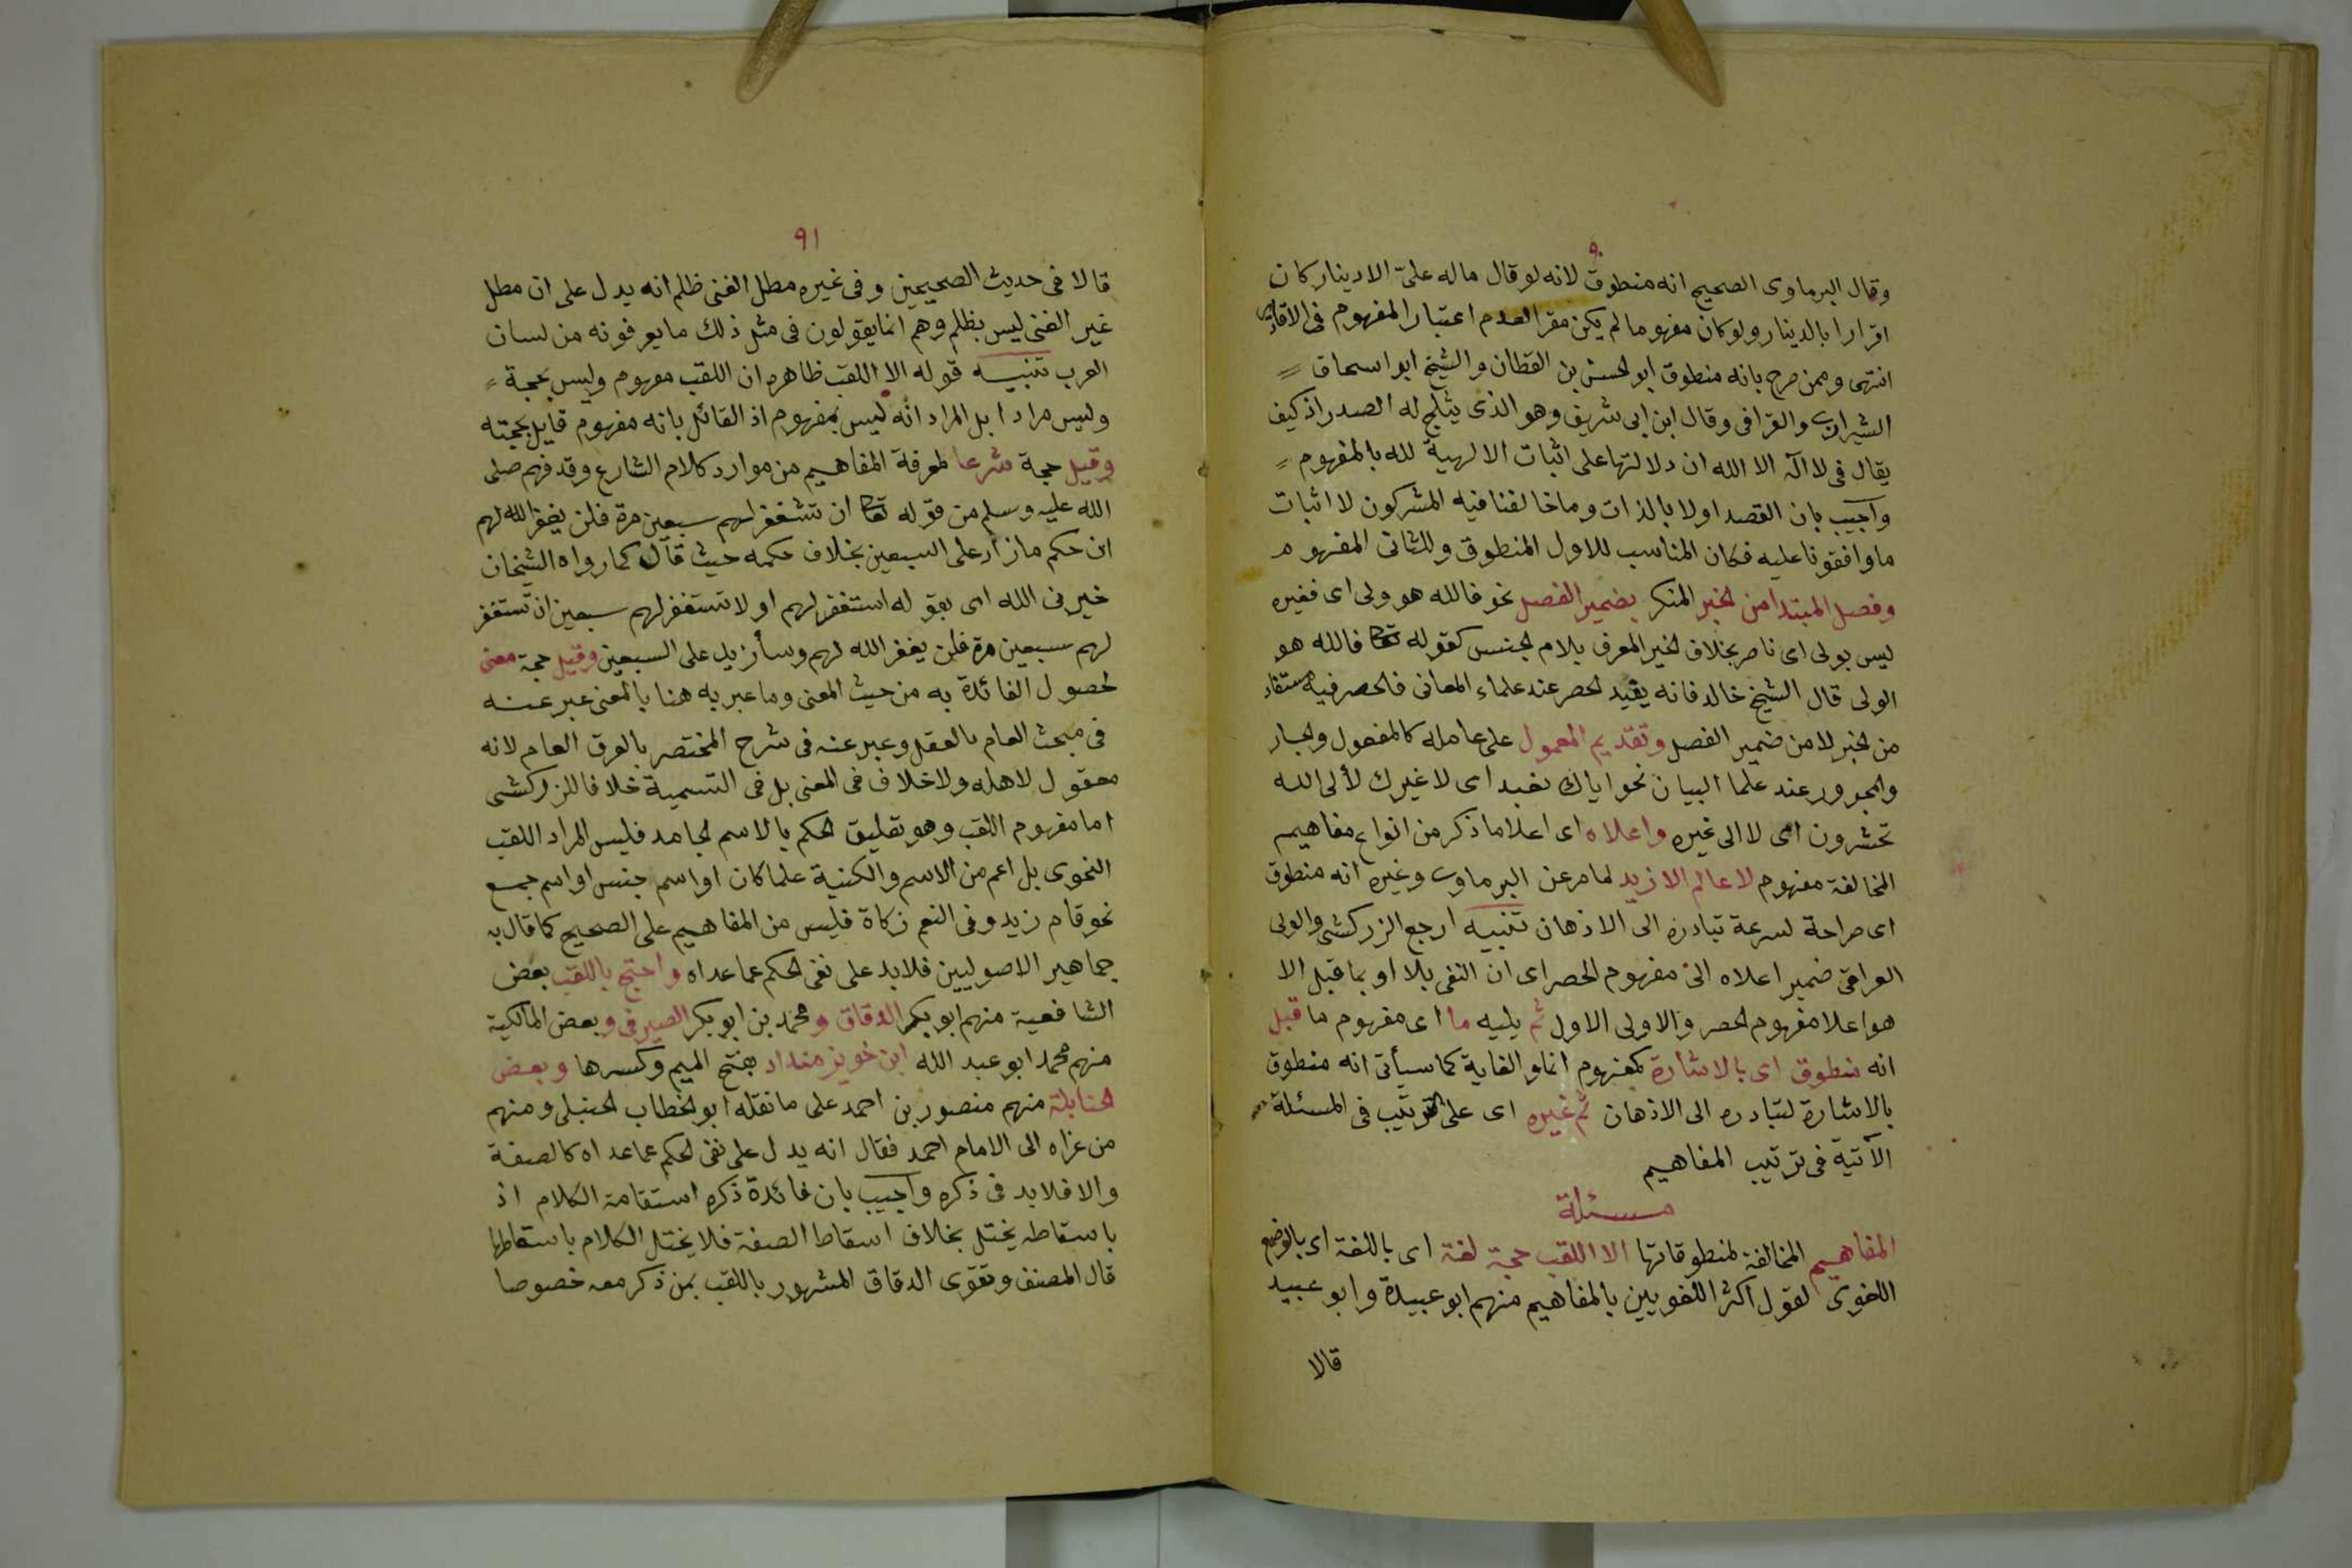 ٩٠
وقال البرماوى الصحيح انه منطوق لانه لو قال ماله علىّ الا دينار كان
اقرارا بالدينار ولو كان مفهوما لم يكن مقرا لعدم اعتبار المفهوم فى الاقارير
انتهى وممن صرح بانه منطوق ابو الحسن بن القطان والشيخ ابو اسحاق
الشيرازى والقرافى وقال ابن ابى شريف وهو الذى يثلج له الصدر اذ كيف
يقال فى لا اله الا الله ان دلالتها على اثبات الالهية لله بالمفهوم
واجيب بان القصد اولا بالذات وما خالفنا فيه المشركون لا اثبات
ما وافقونا عليه فكان المناسب للاول المنطوق وللثانى المفهوم
وفصل المبتدا من الخبر المنكر بضمير الفصل نحو فالله هو ولى اى فغيره
ليس بولى اى ناصر بخلاف الخبر المعرف بلام الجنس كقوله تعا فالله هو
الولى قال الشيخ خالد فانه يفيد الحصر عند علماء المعانى فالحصر فيه مستفاد
من الخبر لا من ضمير الفصل وتقديم المعمول على عامله كالمفعول والجار
والمجرور عند علما البيان نحو اياك نعبد اى لا غيرك لألى الله
تحشرون اى لا الى غيره واعلاه اى اعلا ما ذكر من انواع مفاهيم
المخالفة مفهوم لا عالم الا زيد لما مر عن البرماوى وغيره انه منطوق
اى صراحة لسرعة تبادره الى الاذهان تنبيه ارجع الزركشى والولى
العراقى ضمير اعلاه الى مفهوم الحصر اى ان النفى بلا او بما قبل الا
هو اعلا مفهوم الحصر والاولى الاول ثم يليه ما اى مفهوم ما قيل
انه منطوق اى بالاشارة كمفهوم انما والغاية كما سيأتى انه منطوق
بالاشارة لتبادره الى الاذهان ثم غيره اى على الترتيب فى المسئلة
الآتية فى ترتيب المفاهيم
مسئلة
المفاهيم المخالفة لمنطوقاتها الا اللقب حجة لغة اى باللغة اى بالوضع
اللغوى لقول اكثر اللغويين بالمفاهيم منهم ابو عبيدة وابو عبيد
قالا
٩١
قالا فى حديث الصحيحين وفى غيره مطل الغنى ظلم انه يدل على ان مطل
غير الغنى ليس بظلم وهم انما يقولون فى مثل ذلك ما يعرفونه من لسان
العرب تنبيه قوله الا اللقب ظاهره ان اللقب مفهوم وليس بحجة
وليس مرادا بل المراد انه ليس بمفهوم اذ القائل بانه مفهوم قايل بحجته
وقيل حجة شرعا لمعرفة المفاهيم من موارد كلام الشارع وقد فهم صلى
الله عليه وسلم من قوله تعا ان تستغفر لهم سبعين مرة فلن يغفر الله لهم
ان حكم ما زاد على السبعين بخلاف حكمه حيث قال كما رواه الشيخان
خيرنى الله اى بقوله استغفر لهم او لا تستغفر لهم سبعين ان تستغفر
لهم سبعين مرة فلن يغفر الله لهم وسأزيد على السبعين وقيل حجة معنى
لحصول الفائدة به من حيث المعنى وما عبر به هنا بالمعنى عبر عنه
فى مبحث العام بالعقل وعبر عنه فى شرح المختصر بالعرف العام لانه
معقول لاهله ولا خلاف فى المعنى بل فى التسمية خلافا للزركشى
اما مفهوم اللقب وهو تعليق الحكم بالاسم الجامد فليس المراد اللقب
النحوى بل اعم من الاسم والكنية علما كان او اسم جنس او اسم جمع
نحو قام زيد وفى النعم زكاة فليس من المفاهيم على الصحيح كما قال به
جماهير الاصوليين فلا يد على نفى الحكم عما عداه واحتج باللقب بعض
الشافعية منهم ابو بكر الدقاق ومحمد بن ابو بكر الصيرفى وبعض المالكية
منهم محمد ابو عبد الله ابن خويز منداد بفتح الميم وكسرها وبعض
الحنابلة منهم منصور بن احمد على ما نقله ابو الخطاب الحنبلى ومنهم
من عزاه الى الامام احمد فقال انه يدل على نفى الحكم عما عداه كالصفة
والا فلا يد فى ذكره واجيب بان فائدة ذكره استقامة الكلام اذ
باسقاطه يختل بخلاف اسقاط الصفة فلا يختل الكلام باسقاطها
قال المصنف وتقوى الدقاق المشهور باللقب بمن ذكر معه خصوصا